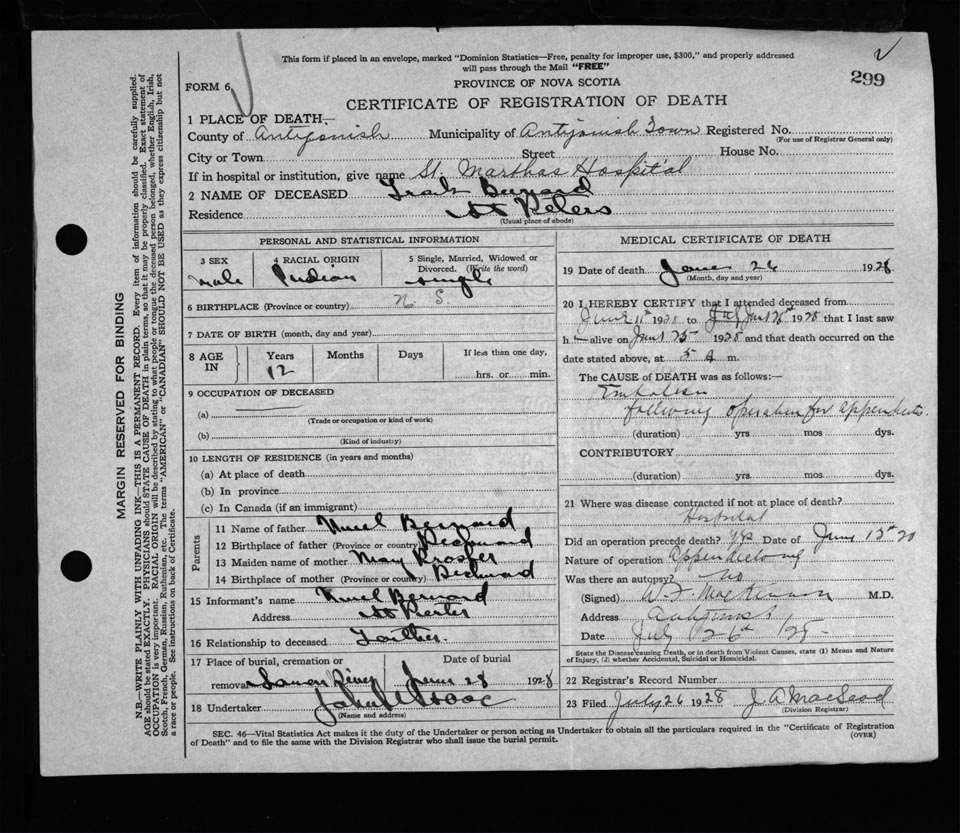 This form if placed in an envelope, marked "Dominion Statistics—Free, penalty for improper use, $300," and properly addressed
will pass through the Mail "FREE"
299
FORM 6
PROVINCE OF NOVA SCOTIA
CERTIFICATE OF REGISTRATION OF DEATH
1 PLACE OF DEATH—
County of Antigonish Municipality of Antigonish Town Registered No.
(For use of Registrar General only)
City or Town Street House No.
If in hospital or institution, give name St. Marthas Hospital
2 NAME OF DECEASED Bernard
Residence St Peters
(Usual place of abode)
PERSONAL AND STATISTICAL INFORMATION
3 SEX 4 RACIAL ORIGIN 5 Single, Married, Widowed or
Divorced. (Write the word)
male Indian single
6 BIRTHPLACE (Province or country) N. S.
7 DATE OF BIRTH (month, day and year)
8 AGE IN Years Months Days If less than one day,
12 hrs. or min.
9 OCCUPATION OF DECEASED
(a)
(Trade or occupation or kind of work)
(b)
(Kind of industry)
10 LENGTH OF RESIDENCE (in years and months)
(a) At place of death
(b) In province
(c) In Canada (if an immigrant)
Parents
11 Name of father Bernard
12 Birthplace of father (Province or country)
13 Maiden name of mother May Prosper
14 Birthplace of mother (Province or country)
15 Informant's name Bernard
Address St Peters
16 Relationship to deceased Father
17 Place of burial, cremation or Date of burial
removal June 28 1928
18 Undertaker John Isaac
(Name and address)
MEDICAL CERTIFICATE OF DEATH
19 Date of death June 26 1928
(Month, day and year)
20 I HEREBY CERTIFY that I attended deceased from
June 11th 1928 to June 26th 1928 that I last saw
h alive on June 25 1928 and that death occurred on the
date stated above, at 5 A m.
The CAUSE of DEATH was as follows:—
Embolism
following operation for appendicitis.
(duration) yrs. mos dys.
CONTRIBUTORY
(duration) yrs. mos. dys.
21 Where was disease contracted if not at place of death?
Hospital
Did an operation precede death? yes Date of June 12th
Nature of operation Appendectomy
Was there an autopsy? No
(Signed) W. F. MacKinnon M.D.
Address Antigonish
Date July 26th /28
State the Disease causing Death, or in death from Violent Causes, state (1) Means and Nature
of Injury, (2) whether Accidental, Suicidal or Homicidal.
22 Registrar's Record Number
23 Filed July 26 1928 J. A. MacLeod
(Division Registrar)
SEC. 46—Vital Statistics Act makes it the duty of the Undertaker or person acting as Undertaker to obtain all the particulars required in the "Certificate of Registration
of Death" and to file the same with the Division Registrar who shall issue the burial permit.
(OVER)
MARGIN RESERVED FOR BINDING
N.B.—WRITE PLAINLY WITH UNFADING INK—THIS IS A PERMANENT RECORD. Every item of information should be carefully supplied.
AGE should be stated EXACTLY. PHYSICIANS should STATE CAUSE OF DEATH in plain terms, so that it may be properly classified. Exact statement of
OCCUPATION is very important. RACIAL ORIGIN will be described by stating to what people or tongue the deceased person belonged, whether English, Irish,
Scotch, French, German, Russian, Ruthenian, etc. The terms "AMERICAN" or "CANADIAN" SHOULD NOT BE USED as they express citizenship but not
a race or people. See instructions on back of Certificate.